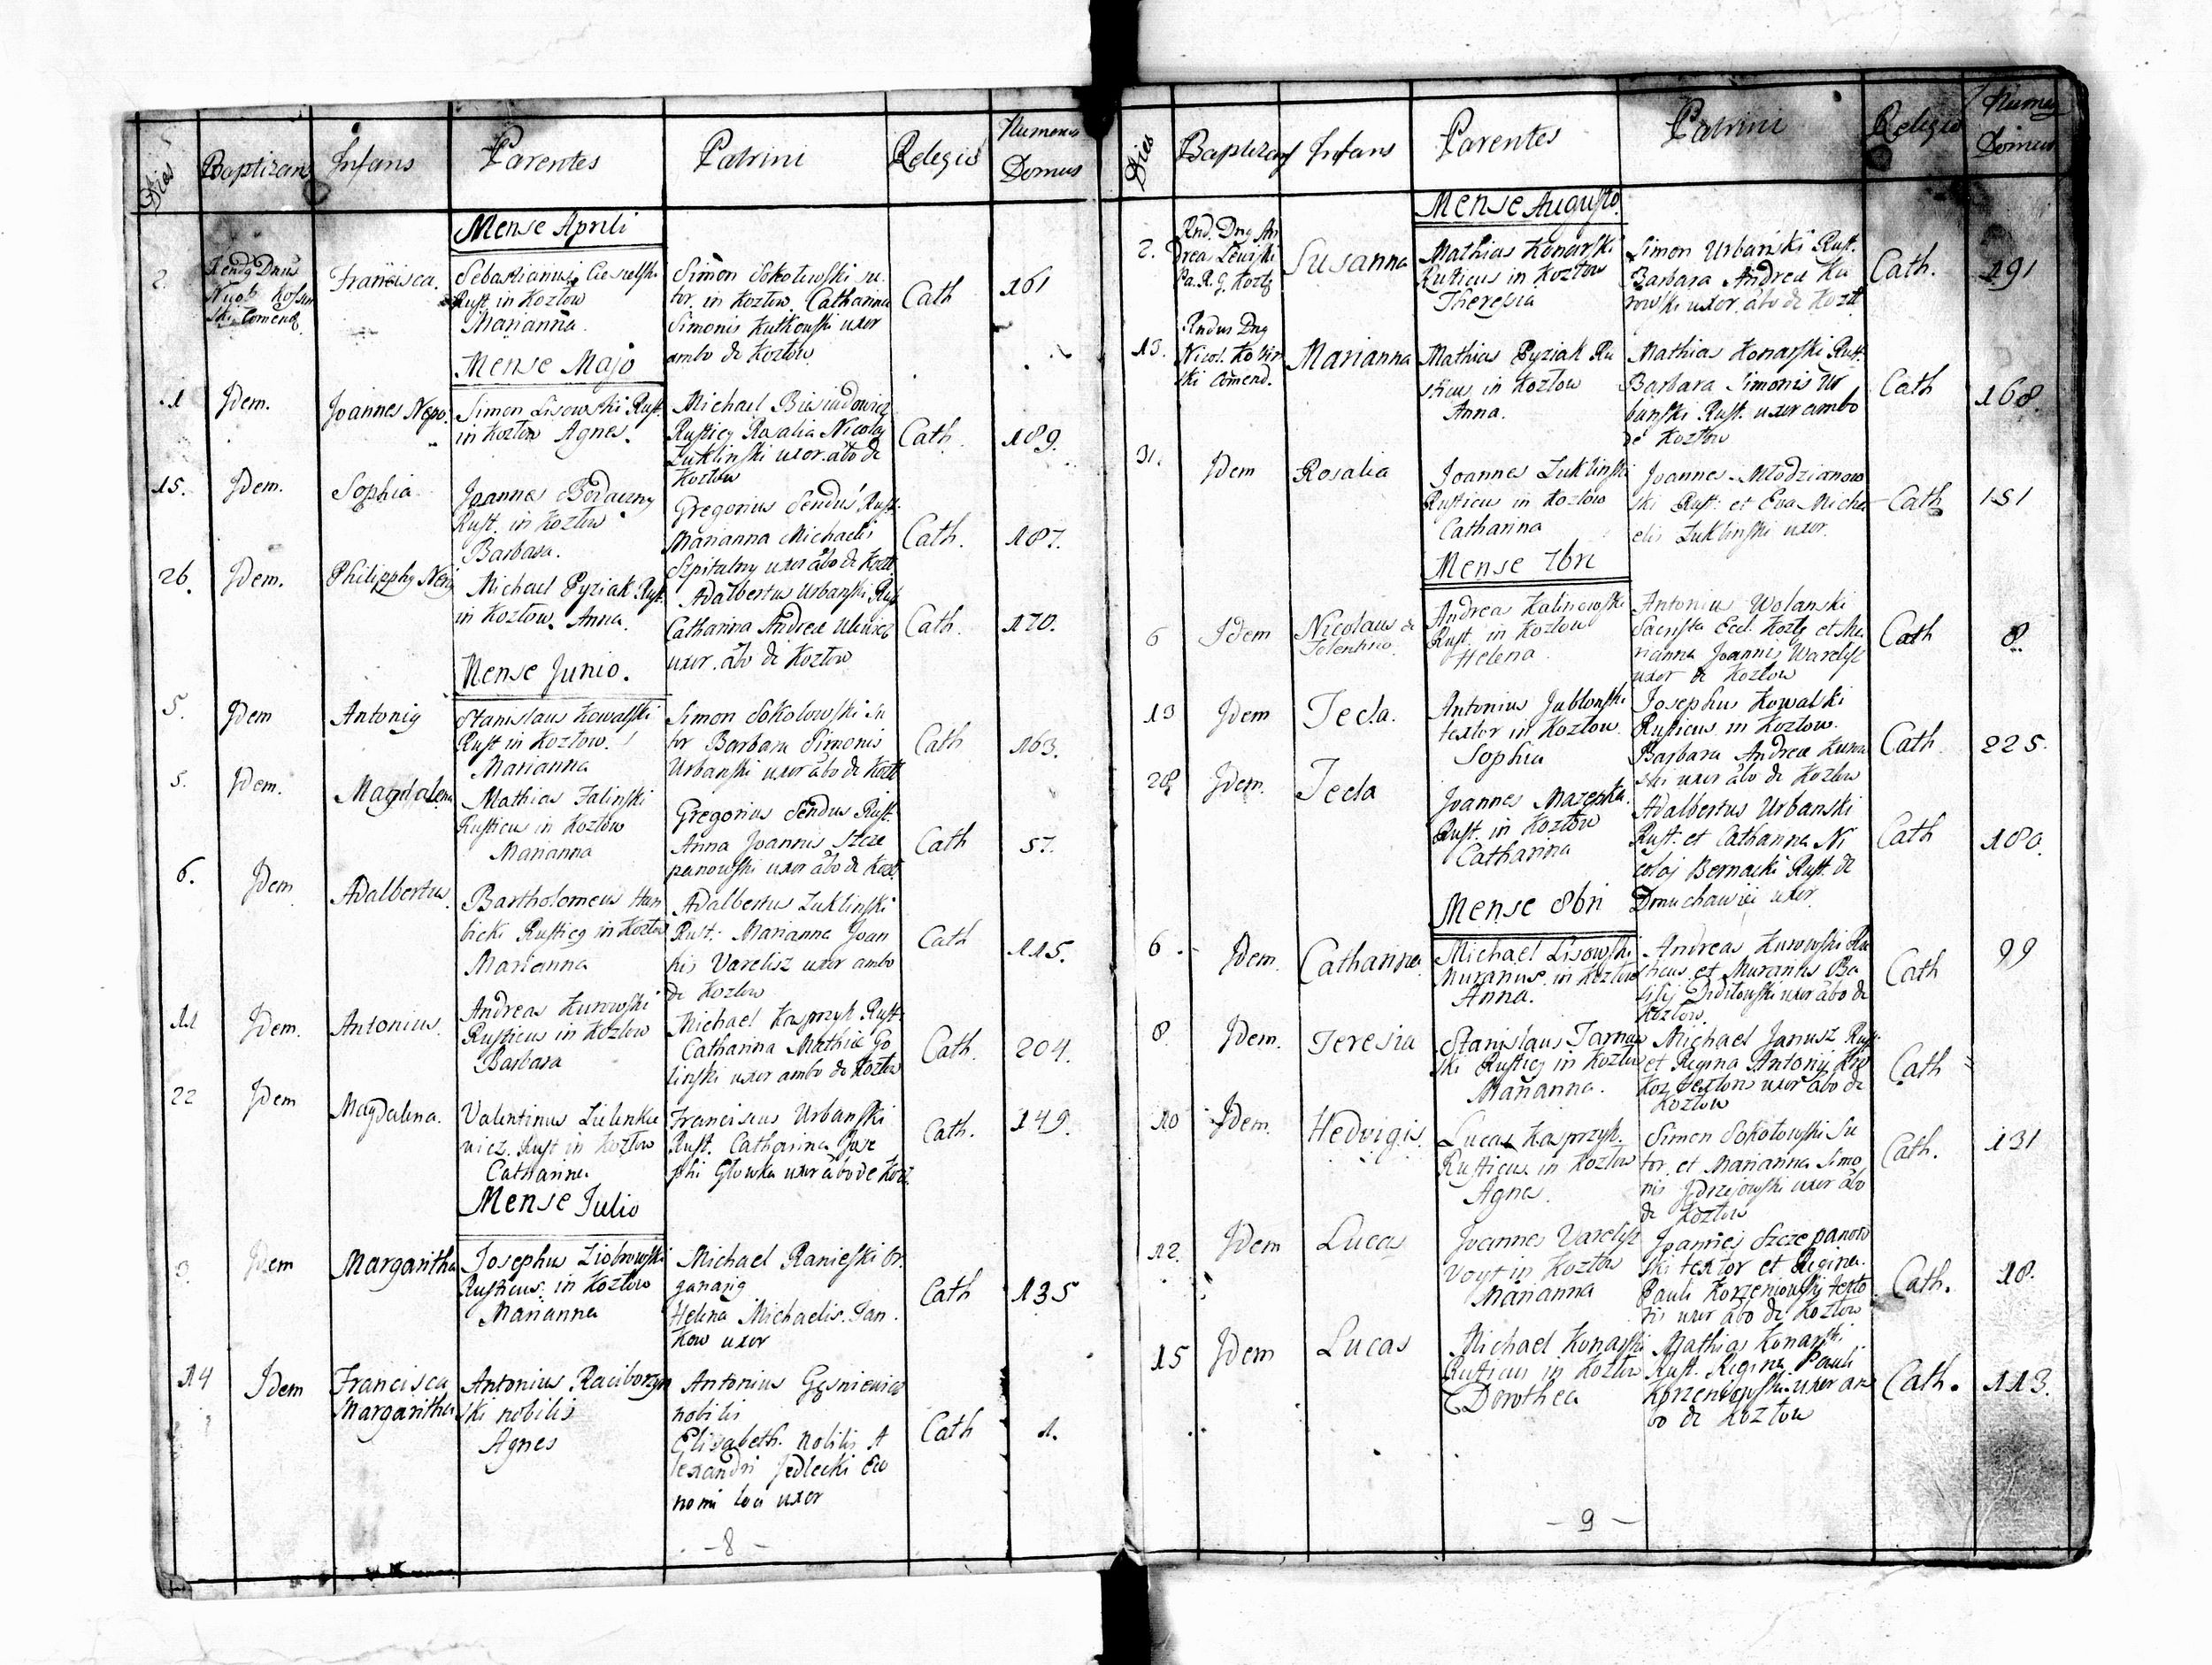 Dies Baptizans Infans Parentes Patrini Religio Numerus Domus
Mense Aprili
2.
Francisca.
Sebastianus Ciesielski
Rust. in Kozłow
Marianna.
Simon Sokołowski su
tor. in Kozłow. Catharina
Simonis Kutkowski uxor
ambo de Kozłow
Cath
161
Mense Majo
1
Idem.
Joannes Nepo.
Simon Lisowski Rust.
in Kozłow Agnes.
Michael Biesiadowicz
Rusticg Rosalia Nicolaj
Zuklinski uxor. abo de
Kozłow
Cath.
189.
15.
Idem.
Sophia
Joannes Bodaczny
Rust. in Kozłow
Barbara.
Gregorius Sendus Rust.
Marianna Michaelis
Szpitalny uxor abo de Kozł.
Cath.
187.
26.
Idem.
Philipphg Nerig
Michael Pyziak Rust.
in Kozłow. Anna.
Adalbertus Urbanski Rust
Catharina Andreae
uxor. abo de Kozłow
Cath.
170.
Mense Junio.
5.
Idem
Antonig
Stanislaus Kowalski
Rust in Kozłow.
Marianna
Simon Sokolowski Su
tor Barbara Simonis
Urbanski uxor abo de Kozł
Cath
163.
5.
Idem.
Magdalena
Mathias Zalinski
Rusticus in Kozłow
Marianna
Gregorius Sendus Rust.
Anna Joannis Szcze
panowski uxor abo de Kozł.
Cath
57.
6.
Idem
Adalbertus.
Bartholomeus Han
bicki Rusticg in Kozłow
Marianna
Adalbertus Zuklinski
Rust. Marianna Joan
nis Varelisz uxor ambo
de Kozlow
Cath
115.
11
Idem.
Antonius.
Andreas Kurowski
Rusticus in Kozlow
Barbara
Michael Kasprzyk Rust.
Catharina Mathiae Go
linski uxor ambo de Kozłow
Cath.
204.
22
Idem
Magdalena.
Valentinus Zielenkie
wicz. Rust in Kozłow
Catharina
Franciscus Urbanski
Rust. Catharina Jose
phi Głowka uxor abo de Kozł.
Cath.
149.
Mense Julio
3.
Idem
Margaritha
Josephus Ziobrowski
Rusticus in Kozłow
Marianna
Michael Ranieski Or
ganarig
Helena Michaelis. Jan
kow uxor
Cath
135
14
Idem
Francisca
Margaritha
Antonius Raciborzyn
ski nobilis
Agnes
Antonius Gąsniewicz
nobilis
Elisabeth. nobilis A
lexandri Jedlecki Eco
nomi loci uxor
Cath
1.
- 8 -
Dies Baptizans Infans Parentes Patrini Religio Numerg Domus
Mense Augusto.
2.
Rnd. Dng An
drea Lewiski
Pa. R. G. Kozłg
Susanna
Mathias Konarski
Rusticus in Kozłow
Theresia
Simon Urbanski Rust.
Barbara Andrea Ku
rowski uxor. abo de Kozł
Cath.
191
13.
Rndus Dng
Nicol. Kossin
ski Comend.
Marianna
Mathias Pyziak Ru
sticus in Kozłow
Anna.
Mathias Konarski Rust.
Barbara Simonis Ur
banski Rust. uxor ambo
de Kozłow
Cath
168.
31.
Idem
Rosalia
Joannes Zuklinski
Rusticus in Kozlow
Catharina
Joannes Młodzianow
ski Rust. et Eva Micha
elis Zuklinski uxor.
Cath
151
Mense 7bri
6
Idem
Nicolaus de
Tolentino.
Andreas Kalinowski
Rust. in Kozlow
Helena
Antonius Wolanski
Sacrista Eccl. Kozłg et Ma
rianna Joannis Warelisz
uxor de Kozłow
Cath
8.
13
Idem
Tecla.
Antonius Jablonski
textor in Kozłow
Sophia
Josephus Kowalski
Rusticus in Kozłow.
Barbara Andrea Kurow
ski uxor abo de Kozlow
Cath
225.
28
Idem.
Tecla
Joannes Mazepka.
Rust. in Kozłow
Catharina
Adalbertus Urbanski
Rust. et Catharina Ni
colaj Bernacki Rust. de
Dmuchawiec uxor
Cath
180.
Mense 8bri
6.
Idem
Catharina
Michael Lisowski
Muranus. in Kozłow
Anna.
Andreas Kurowski Ru
sticus et Muranus Ba
silij Diditowski uxor abo de
Kozlow.
Cath
99
8.
Idem.
Teresia
Stanislaus Tarnaw
ski Rusticg in Kozlow
Marianna.
Michael Janusz Rust.
et Regina Antonij
textoris uxor abo de
Kozłow
Cath
10
Idem.
Hedvigis
Lucas Kasprzyk.
Rusticus in Kozłow
Agnes.
Simon Sokołowski Su
tor. et Marianna Simo
nis Jdrzejowski uxor abo
de Kozłow
Cath.
131
12.
Idem
Lucas
Joannes Varelisz
Voyt in Kozłow
Marianna
Joannes Szczepanow
ski textor et Regina
Pauli Korzeniowski texto
ris uxor abo de Kozłow
Cath.
18.
15
Idem
Lucas
Michael Konarski
Rusticus in Kozłow
Dorothea
Mathias Konarski
Rust. Regina Pauli
Korzeniowski uxor am
bo de Kozłow
Cath.
113.
- 9 -